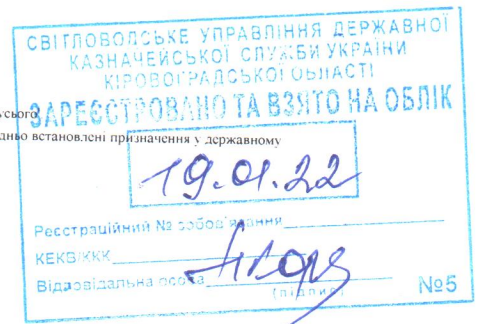 СВІТЛОВОДСЬКЕ УПРАВЛІННЯ ДЕРЖАВНОЇ
КАЗНАЧЕЙСЬКОЇ СЛУЖБИ УКРАЇНИ
КІРОВОГРАДСЬКОЇ ОБЛАСТІ
усього
ЗАРЕЄСТРОВАНО ТА ВЗЯТО НА ОБЛІК
дньо встановлені призначення у державному
19.01.22
Реєстраційний № зобов'язання
КЕКВ/ККК
Відповідальна особа
(підпис)
№5